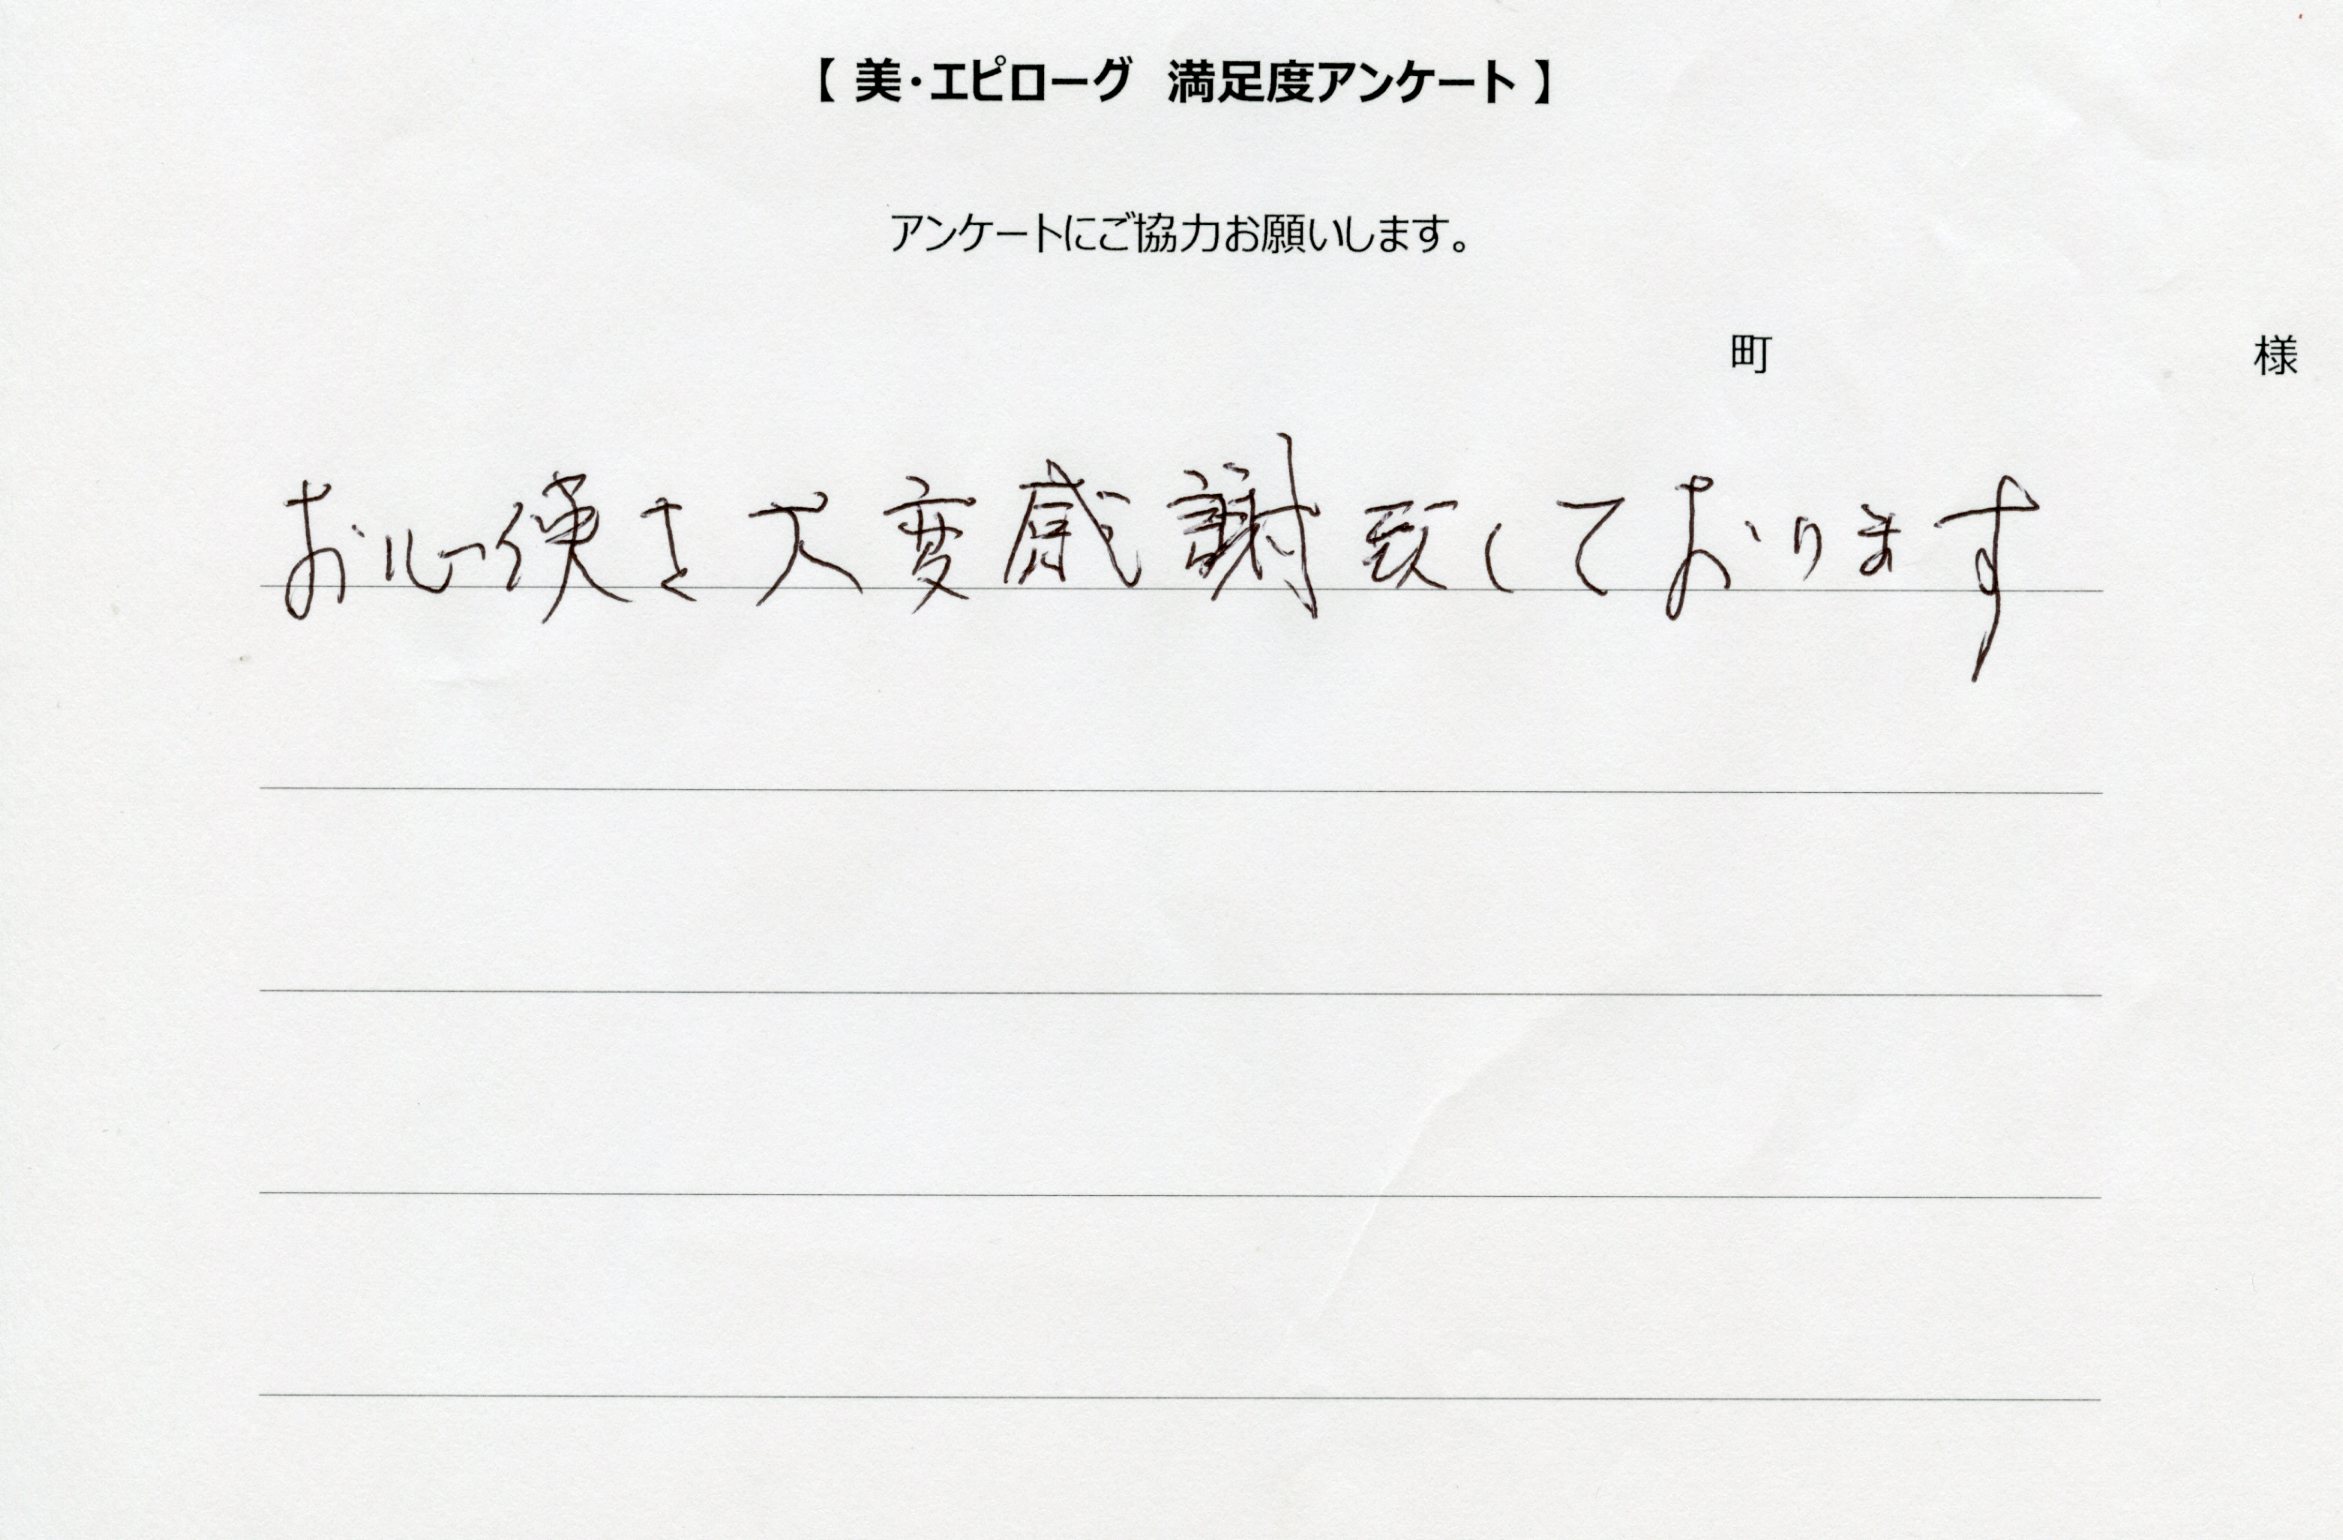 【 美・エピローグ 満足度アンケート 】
アンケートにご協力お願いします。
町 様
お心使き大変感謝致しております